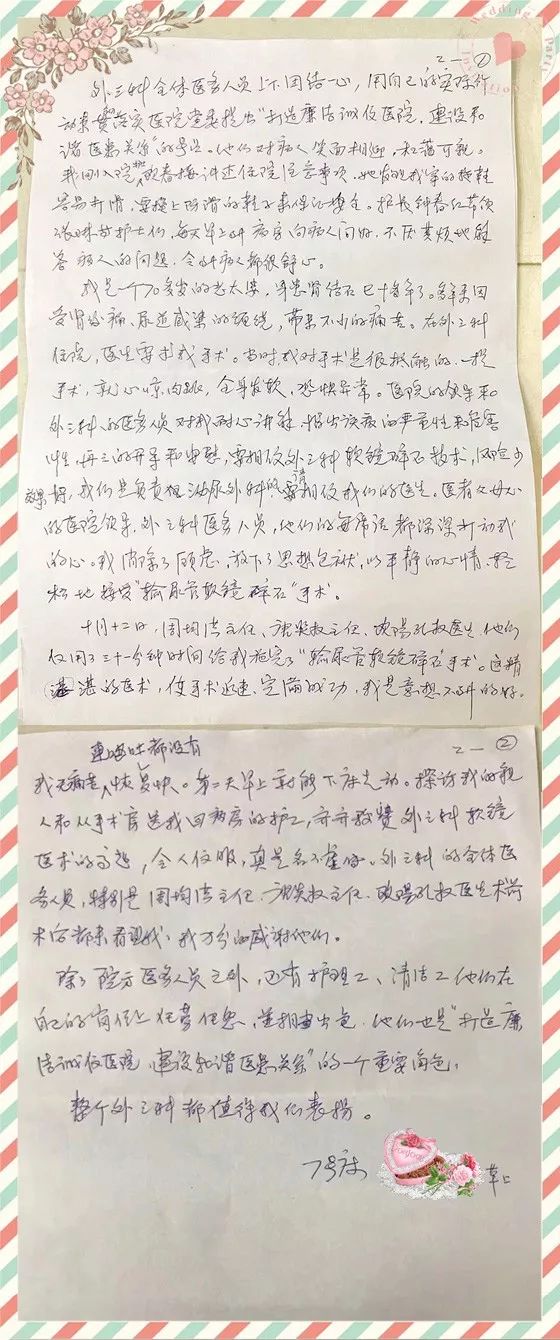 2—①
外三科全体医务人员上下团结一心，用自己的实际行
动来贯彻落实医院党委提出“打造廉洁诚信医院，建设和
谐医患关系”的号召。他们对病人笑面相迎，和蔼可亲。
我刚入院，春梅讲述住院注意事项，她发现我穿的拖鞋
容易打滑，要换上防滑的鞋子来保证安全。护长钟春红带领
张 护士们，每天早上到病房向病人问好，不厌其烦地解
答病人的问题，令到病人都很舒心。
我是一个70多岁的老太婆，身患肾结石已十多年了。多年来因
受肾绞痛、尿道感染的缠绕，带来不少的痛苦。在外三科
住院，医生要求我手术。当时，我对手术是很抵触的，一提
手术，就心惊肉跳，全身发软，恐惧异常。医院的领导和
外三科的医务人员对我耐心讲解，指出该病的严重性和危害
性，再三的开导和安慰，要相信外三科软镜碎石技术，创包少
效果好，我们是负责任泌尿外科的，请要相信我们的医生，医者父母心
的医院领导、外三科医务人员，他们的每席话都深深打动我
的心。我消除了顾虑，放下了思想包袱，以平静的心情，轻
松地接受“输尿管软镜碎石”手术。
十月十二日，周均洪主任、 主任、欧阳孔 医生，他们
仅用了三十分钟时间给我施完了“输尿管软镜碎石”手术。这精
湛的医术，使手术迅速、完满成功，我是意想不到的好。
2—②
连呕吐都没有
我无病苦，恢复快。第二天早上就能下床走动。探访我的亲
人和从手术房送我回病房的护工，齐齐称赞外三科软镜
医术的高超，令人信服，真是名不虚传。外三科的全体医
务人员，特别是周均洪主任、 主任、欧阳孔 医生术前
术后都来看望我，我万分的感谢他们。
除了院方医务人员之外，还有护理工、清洁工他们在
自己的岗位上任劳任怨，差相画出色，他们也是“打造廉
洁诚信医院，建设和谐医患关系”的一个重要角色。
整个外三科都值得我们表扬。
7号床 草上